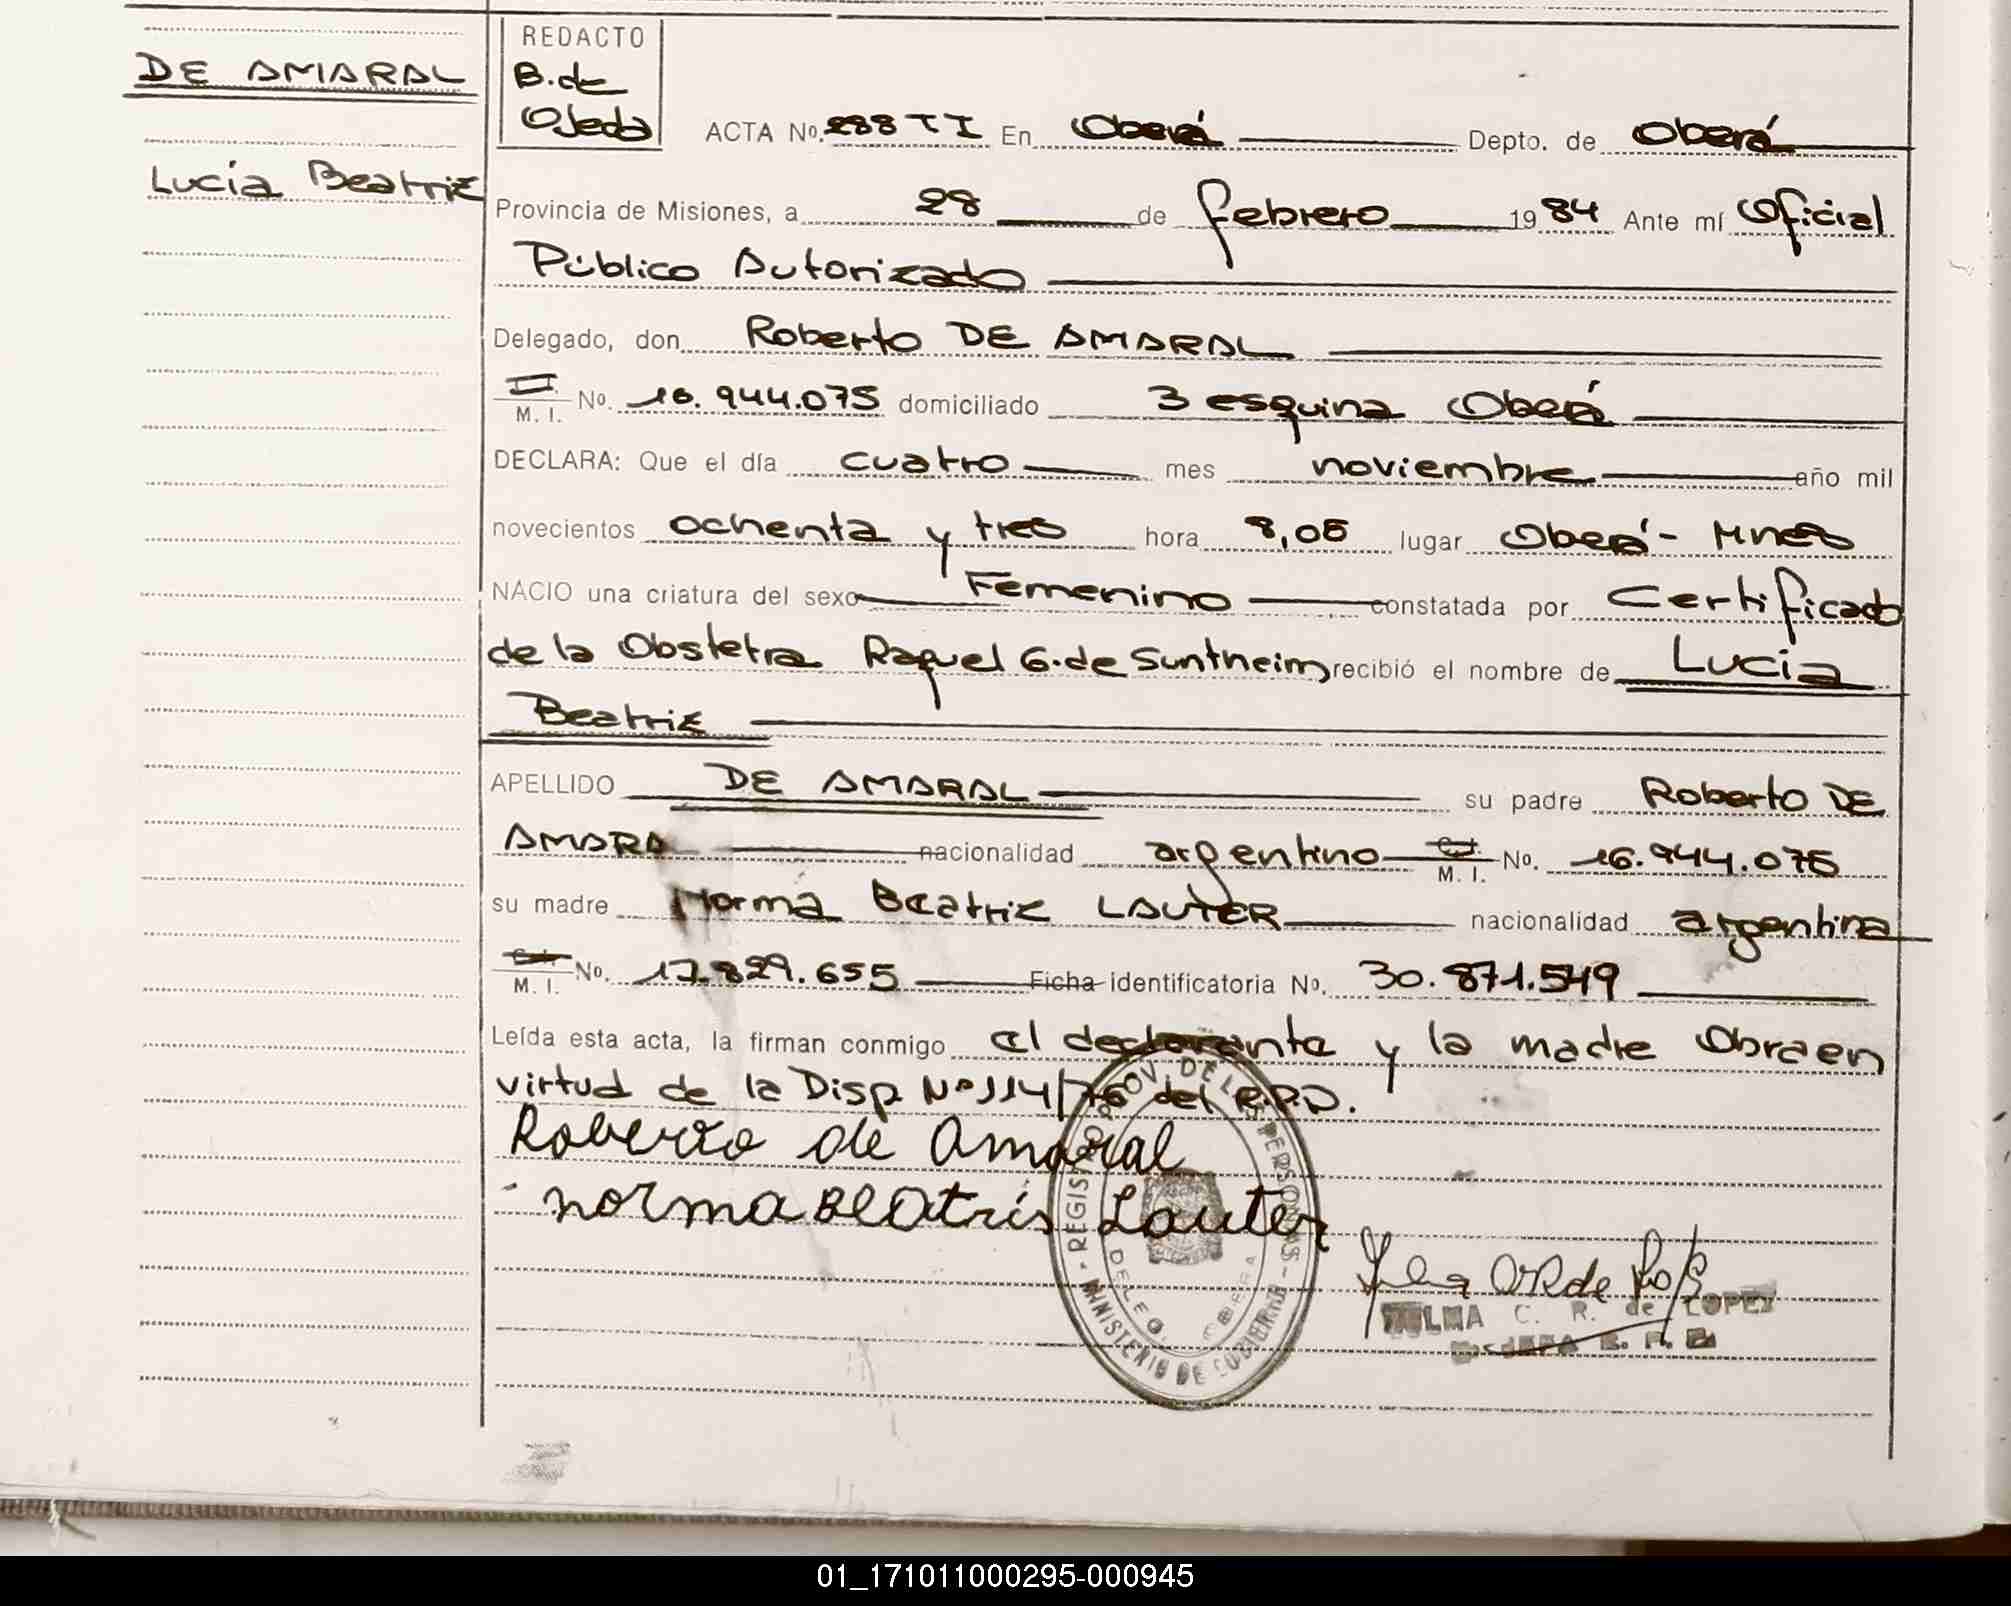 DE AMARAL
Lucía Beatriz
REDACTO
B. de
Ojeda
ACTA Nº. 288 TI En Oberá Depto. de Oberá
Provincia de Misiones, a 28 de febrero 1984 Ante mí Oficial
Público Autorizado
Delegado, don Roberto DE AMARAL
M. I. Nº. 16.944.075 domiciliado 3 esquina Oberá
DECLARA: Que el día cuatro mes noviembre año mil
novecientos ochenta y tres hora 8,05 lugar Oberá - Mnes
NACIO una criatura del sexo Femenino constatada por Certificado
de la Obstetra Raquel G. de Suntheim recibió el nombre de Lucía
Beatriz
APELLIDO DE AMARAL su padre Roberto DE
AMARA nacionalidad argentino M. I. Nº. 16.944.075
su madre Norma Beatriz LAUTER nacionalidad argentina
M. I. Nº. 17.829.655 Ficha identificatoria Nº. 30.871.549
Leída esta acta, la firman conmigo el declarante y la madre Obra en
virtud de la Disp Nº 114/76 del R.P.P.
Roberto de Amaral
norma Beatris Lauter
REGIST PROV. DE LAS PERSONAS - MINISTERIO DE GOBIERNO
DELEG. OBERA
C. R. de LOPEZ
01_171011000295-000945